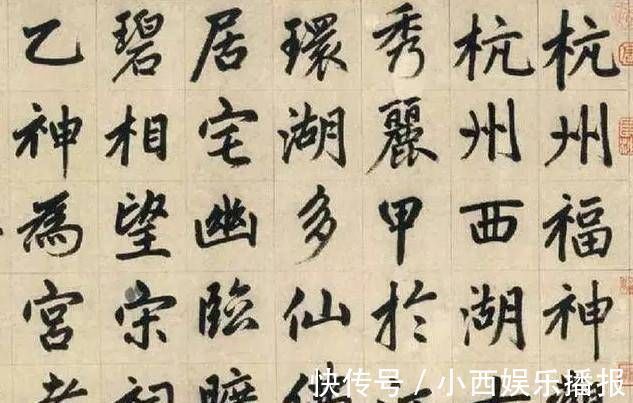 杭州福神
杭州西湖
秀麗甲於
環湖多仙
居宅幽臨
碧相望宗
乙神為宮
快传号/小西娱乐播报